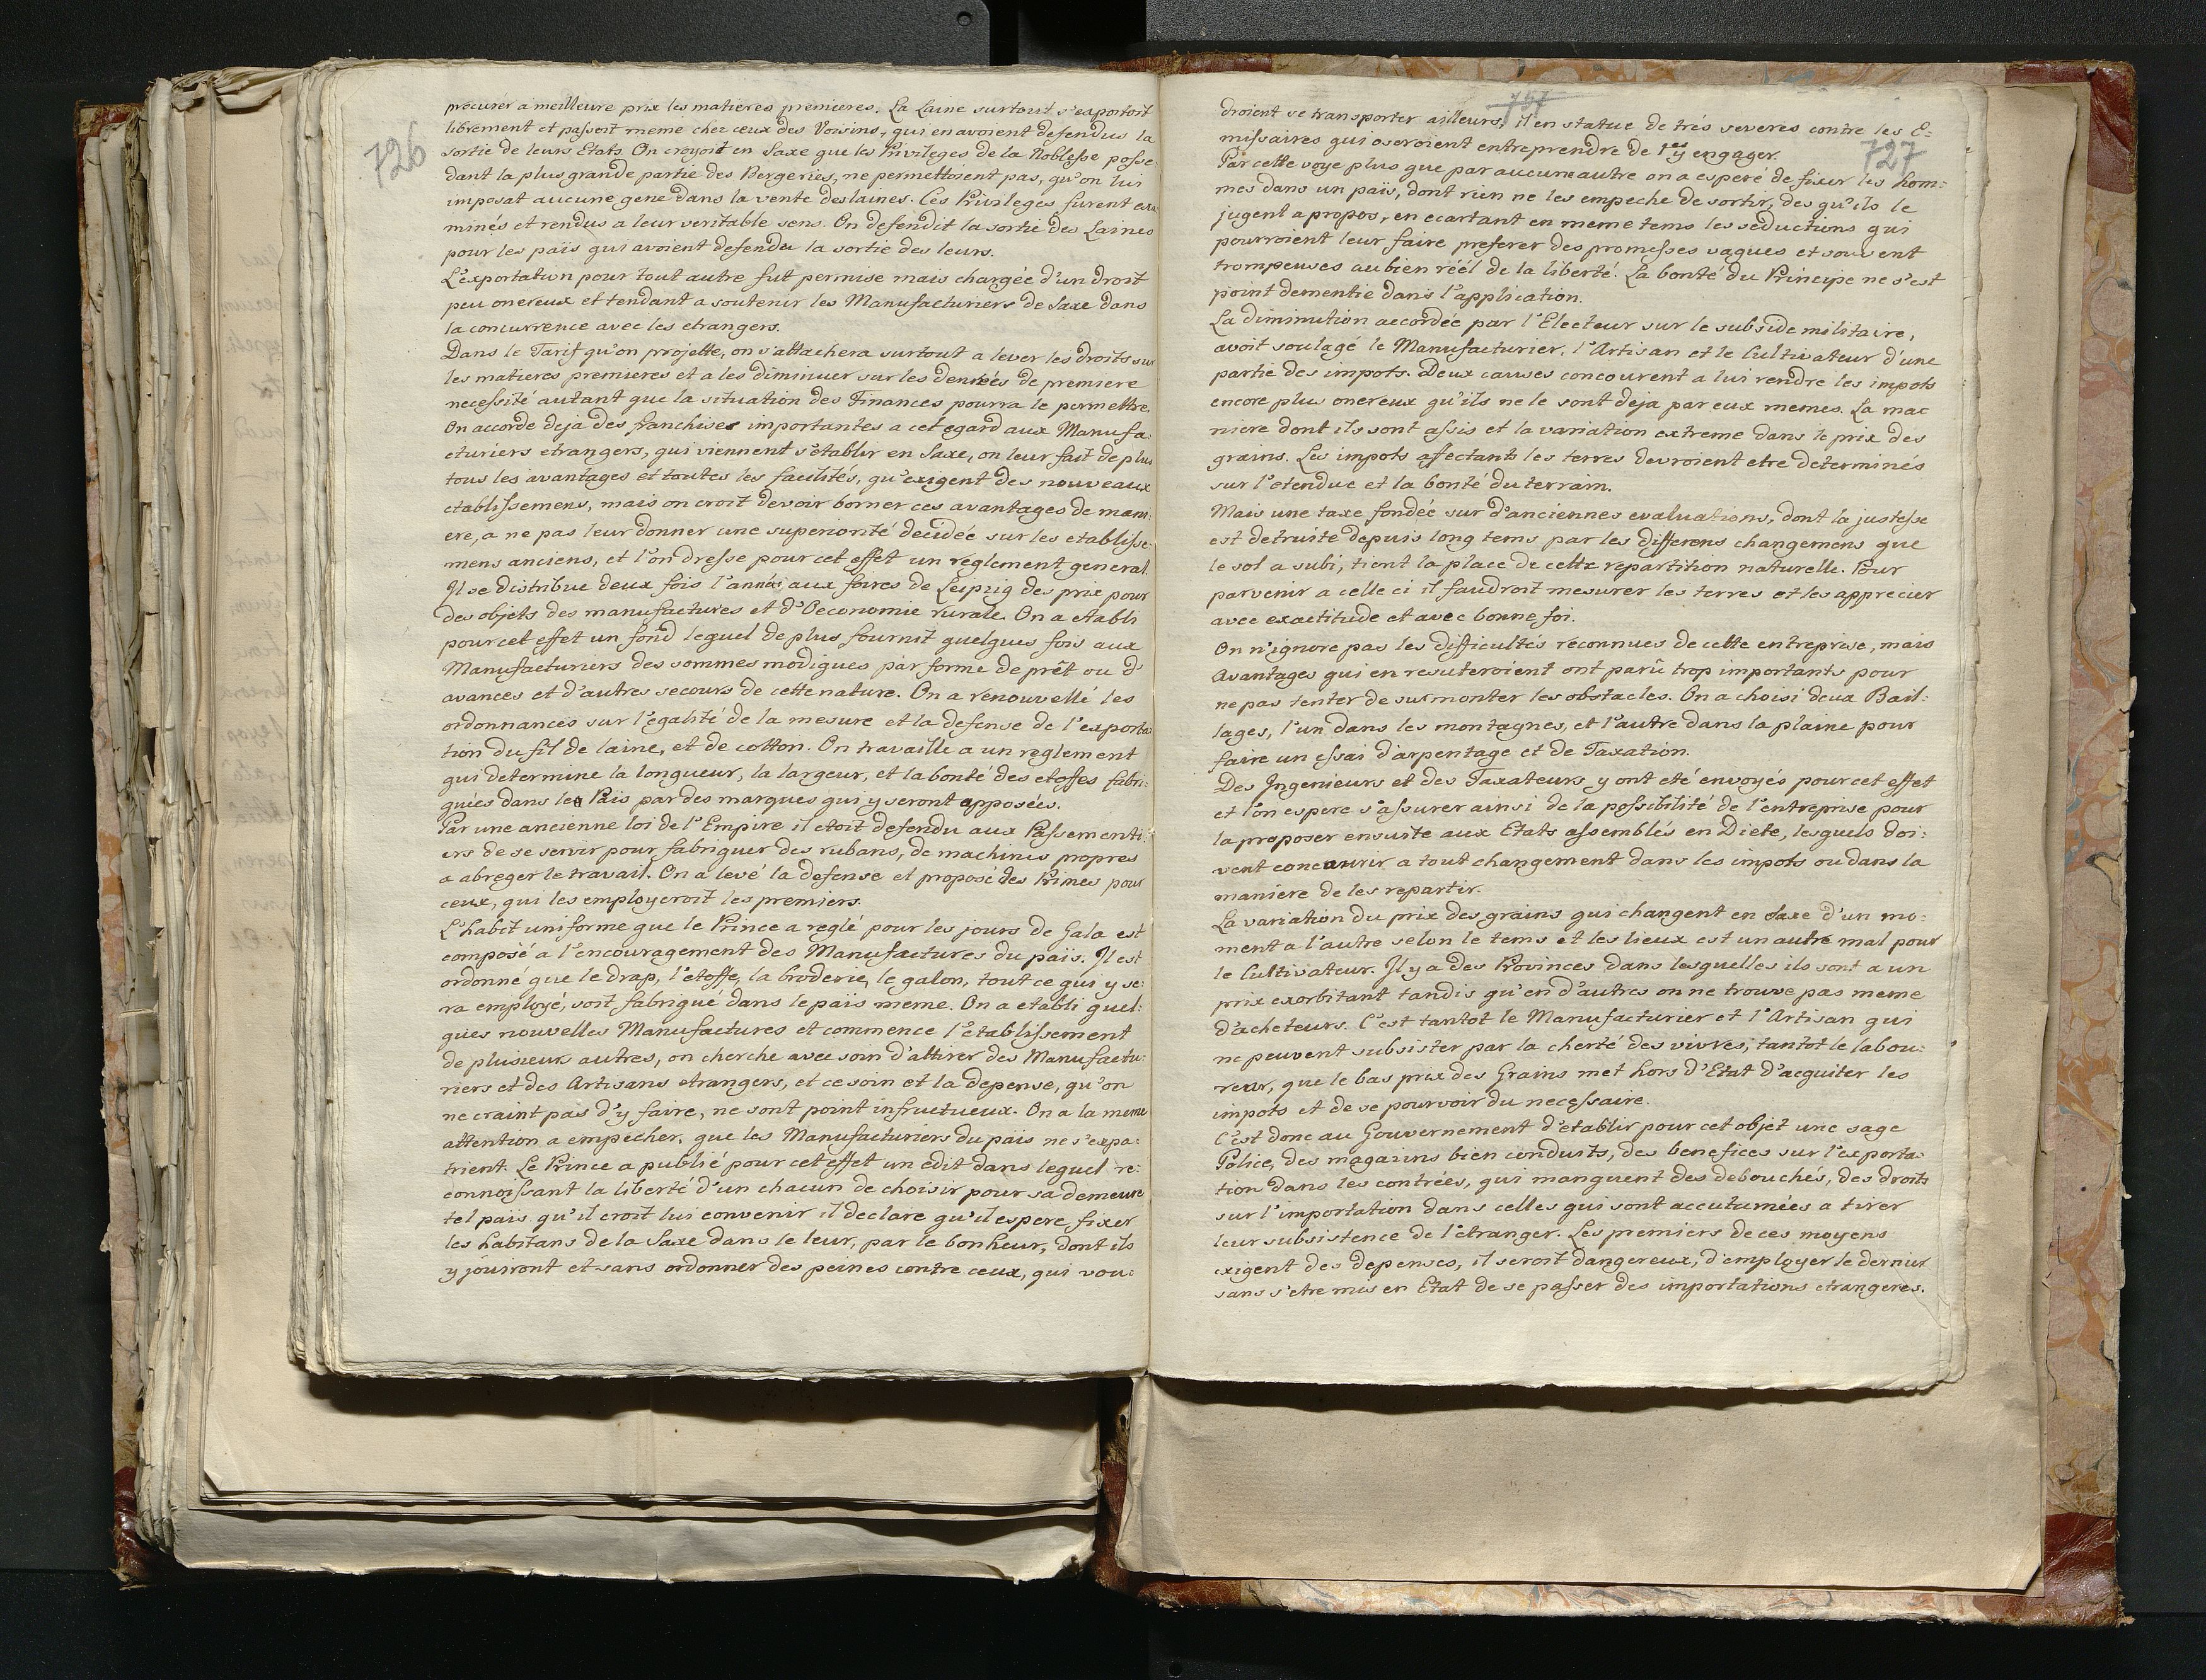 726
procurér a meilleure prix les matieres premieres. La Laine surtout s'exportoit
librement et passoit meme chez ceux des Voisins, qui en avoient defendus la
sortie de leurs Etats. On croyoit en Saxe que les Privileges de la Noblesse posse
dant la plus grande partie des Bergeries, ne permettoient pas, qu'on lui
imposat aucune gene dans la vente des laines. Ces Privileges furent exa
minés et rendus a leur veritable sens. On defendit la sortie des Laines
pour les païs qui avoient defendu la sortie des leurs.
L'exportation pour tout autre fut permise mais chargée d'un droit
peu onereux et tendant a soutenir les Manufacturiers de Saxe dans
la concurrence avec les etrangers.
Dans le Tarif qu'on projette, on s'attachera surtout a lever les droits sur
les matieres premieres et a les diminuer sur les denrées de premiere
necessité autant que la situation des Finances pourra le permettre.
On accorde deja des franchises importantes a cet egard aux Manufa:
cturiers etrangers, qui viennent s'etablir en Saxe, on leur fait de plus
tous les avantages et toutes les facilités, qu'exigent des nouveaux
etablissemens, mais on croit devoir borner ces avantages de mani:
ere, a ne pas leur donner une superiorité decidée sur les etablisse:
mens anciens, et l'on dresse pour cet effet un reglement general.
Il se distribue deux fois l'année aux foires de Leipzig des prix pour
des objets des manufactures et d'Oeconomie rurale. On a etabli
pour cet effet un fond lequel de plus fournit quelques fois aux
Manufacturiers des sommes modiques par forme de prêt ou d'
avances et d'autres secours de cette nature. On a renouvellé les
ordonnances sur l'egalité de la mesure et la defense de l'exporta
tion du fil de laine, et de cotton. On travaille a un reglement
qui determine la longueur, la largeur, et la bonté des etoffes fabri:
quées dans le Païs par des marques qui y seront apposées.
Par une ancienne loi de l'Empire il etoit defendu aux Passementi:
ers de se servir pour fabriquer des rubans, de machines propres
a abreger le travail. On a levé la defense et proposé des Primes pour
ceux, qui les employeroit les premiers.
L'habit uniforme que le Prince a reglé pour les jours de Gala est
composé a l'encouragement des Manufactures du païs. Il est
ordonné que le drap, l'etoffe, la broderie, le galon, tout ce qui y se:
ra employé, soit fabriqué dans le païs meme. On a etabli quel:
ques nouvelles Manufactures et commence l'etablissement
de plusieurs autres, on cherche avec soin d'attirer des Manufactu:
riers et des Artisans etrangers, et ce soin et la depense, qu'on
ne craint pas d'y faire, ne sont point infructueux. On a la meme
attention a empecher, que les Manufacturiers du païs ne s'expa:
trient. Le Prince a publié pour cet effet un edit dans lequel re:
connoissant la liberté d'un chacun de choisir pour sa demeure
tel païs qu'il croit lui convenir il declare qu'il espere fixer
les habitans de la Saxe dans le leur, par le bonheur, dont ils
y jouiront et sans ordonner des peines contre ceux, qui vou:
727
droient se transporter ailleurs, il en statue de trés severes contre les E:
missaires qui oseroient entreprendre de les y engager.
Par cette voye plus que par aucune autre on a esperé de fixer les hom:
mes dans un païs, dont rien ne les empeche de sortir, des qu'ils le
jugent a propos, en ecartant en meme tems les seductions qui
pourroient leur faire preferer des promesses vagues et souvent
trompeuses au bien réél de la liberté. La bonté du Principe ne s'est
point dementie dans l'application.
La diminution accordée par l'Electeur sur le subside militaire,
avoit soulagé le Manufacturier, l'Artisan et le Cultivateur d'une
partie des impots. Deux causes concourent a lui rendre les impots
encore plus onereux qu'ils ne le sont deja par eux memes. La mac
niere dont ils sont assis et la variation extreme dans le prix des
grains. Les impots affectants les terres devroient etre determinés
sur l'etendue et la bonté du terrain.
Mais une taxe fondée sur d'anciennes evaluations, dont la justesse
est detruite depuis long tems par les differens changemens que
le sol a subi, tient la place de cette repartition naturelle. Pour
parvenir a celle ci il faudroit mesurer les terres et les apprecier
avec exactitude et avec bonne foi.
On n'ignore pas les difficultés reconnues de cette entreprise, mais
avantages qui en resuteroient ont parû trop importants pour
ne pas tenter de surmonter les obstacles. On a choisi deux Bail:
lages, l'un dans les montagnes, et l'autre dans la plaine pour
faire un essai d'arpentage et de Taxation.
Des Ingenieurs et des Taxateurs y ont eté envoyés pour cet effet
et l'on espere s'assurer ainsi de la possibilité de l'entreprise pour
la proposer ensuite aux Etats assemblés en Diete, lesquels doi:
vent concourir a tout changement dans les impots ou dans la
maniere de les repartir.
La variation du prix des grains qui changent en Saxe d'un mo:
ment a l'autre selon le tems et les lieux est un autre mal pour
le Cultivateur. Il y a des Provinces dans lesquelles ils sont a un
prix exorbitant tandis qu'en d'autres on ne trouve pas meme
d'acheteurs. C'est tantot le Manufacturier et l'Artisan qui
ne peuvent subsister par la cherté des vivres, tantot le labou:
reur, que le bas prix des Grains met hors d'Etat d'acquiter les
impots et de se pourvoir du necessaire.
C'est donc au Gouvernement d'etablir pour cet objet une sage
Police, des magazins bien conduits, des benefices sur l'exporta:
tion dans les contrées, qui manquent des debouchés, des droits
sur l'importation dans celles qui sont accutumées a tirer
leur subsistence de l'etranger. Les premiers de ces moyens
exigent des depenses, il seroit dangereux, d'employer le dernier
sans s'etre mis en Etat de se passer des importations etrangeres.